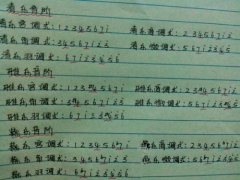 清乐音阶
清乐宫调式：1 2 3 4 5 6 7 i 清乐商调式：2 3 4 5 6 7 i 2
清乐角调式：3 4 5 6 7 i 2 3 清乐徵调式：5 6 7 i 2 3 4 5
清乐羽调式：6 7 i 2 3 4 5 6
雅乐音阶
雅乐宫调式：1 2 3 #4 5 6 7 i 雅乐商调式：2 3 #4 5 6 7 i 2
雅乐角调式：3 #4 5 6 7 i 2 3 雅乐徵调式：5 6 7 i 2 3 #4 5
雅乐羽调式：6 7 i 2 3 #4 5 6
燕乐音阶
燕乐宫调式：1 2 3 4 5 6 b7 i 燕乐商调式：2 3 4 5 6 b7 i 2
燕乐角调式：3 4 5 6 b7 i 2 3 燕乐徵调式：5 6 b7 i 2 3 4 5
燕乐羽调式：6 b7 i 2 3 4 5 6